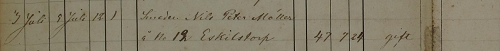 3 Juli 8 Juli 12 1 Smeden Nils Peter Möller
å No 12 Eskilstorp 47 7 24 gift